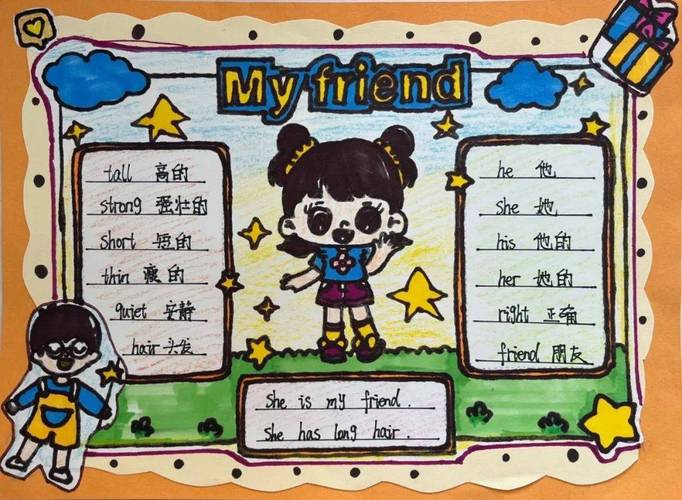 My friend
tall 高的
strong 强壮的
short 短的
thin 瘦的
quiet 安静
hair 头发
he 他
she 她
his 他的
her 她的
right 正确
friend 朋友
She is my friend.
She has long hair.